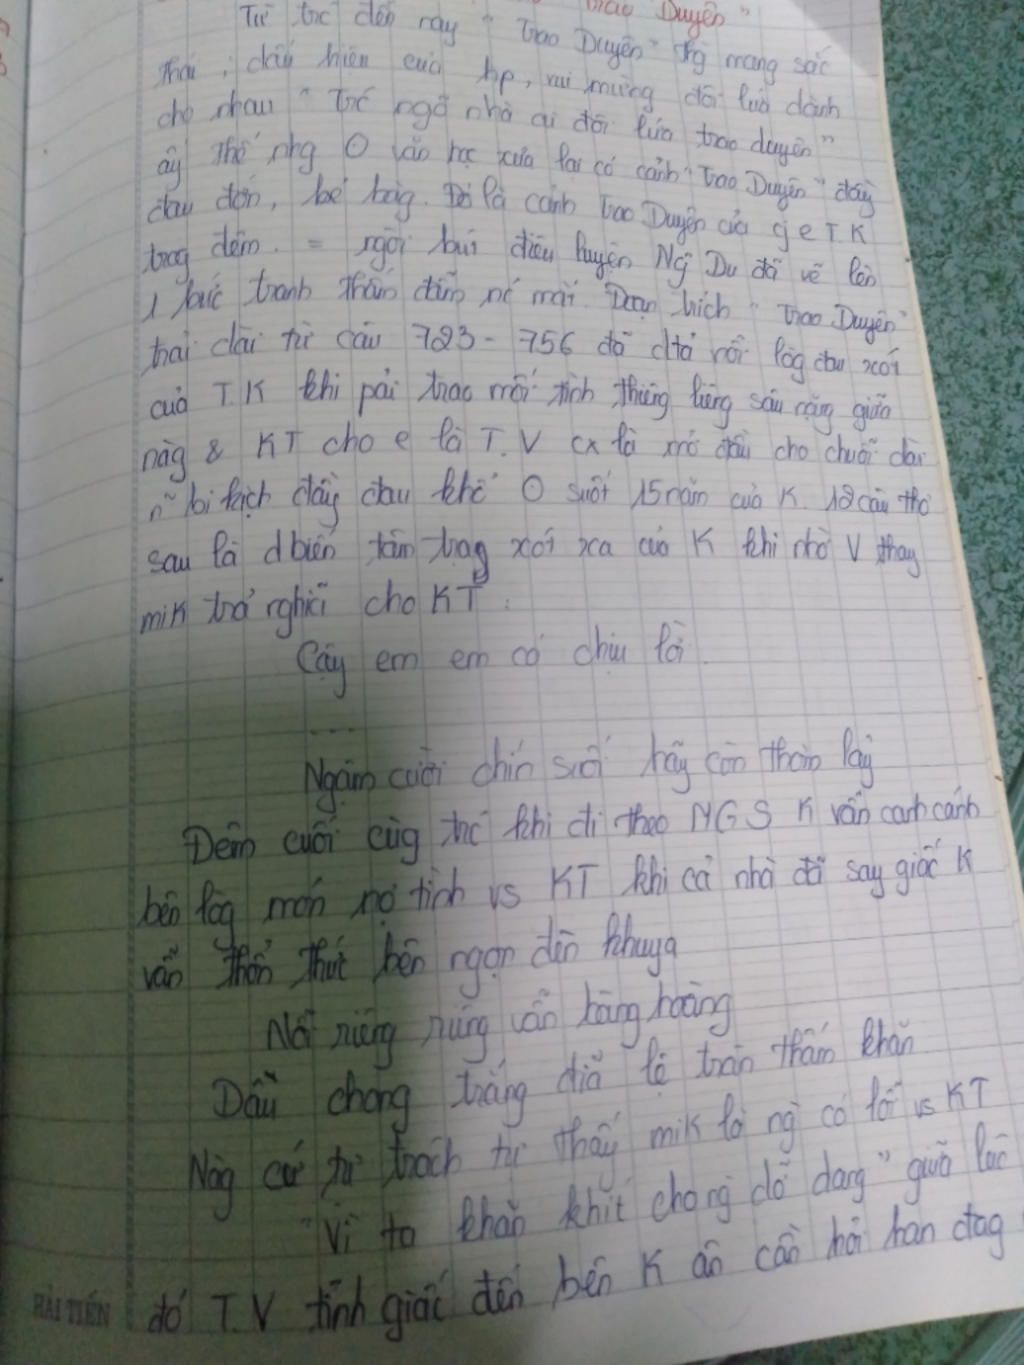 Trao Duyên"
Từ trc đến nay "Trao Duyên" thg mang sắc
thái, dấu hiệu của hp, vui mừng đôi lứa dành
cho nhau "Trc ngõ nhà ai đôi lứa trao duyên"
ấy thế nhg O văn học xưa lại có cảnh "Trao Duyên" đầy
đau đớn, bẽ bàg. Đó là cảnh Trao Duyên của c e T.K
trog đêm. = ngòi bút điêu luyện Ng Du đã vẽ lên
1 bức tranh thấm đẫm nc mắt. Đoạn trích "Trao Duyên"
trải dài từ câu 723 - 756 đã dtả nỗi lòg đau xót
của T.K khi pải trao mối tình thiêng liêng sâu nặng giữa
nàg & KT cho e là T.V cx là mở đầu cho chuỗi dài
n~ bi kịch đầy đau khổ O suốt 15 năm của K. 12 câu thơ
sau là dbiến tâm trạg xót xa của K khi nhờ V thay
mik trả nghĩa cho KT.
Cậy em em có chịu lời
...
Ngậm cười chín suối hãy còn thơm lây
Đêm cuối cùg trc khi đi theo MGS K vẫn canh cánh
bên lòg món nợ tình vs KT khi cả nhà đã say giấc K
vẫn thổn thức bên ngọn đèn khuya
Nỗi riêng riêng vẫn bàng hoàng
Dầu chong trắng đĩa lệ tràn thấm khăn
Nàg cứ tự trách tự thấy mik là ng có lỗi vs KT
"Vì ta khăn khít cho ng dở dang" giữa lúc
đó T.V tỉnh giấc đến bên K ân cần hỏi han đag
HẢI TIẾN